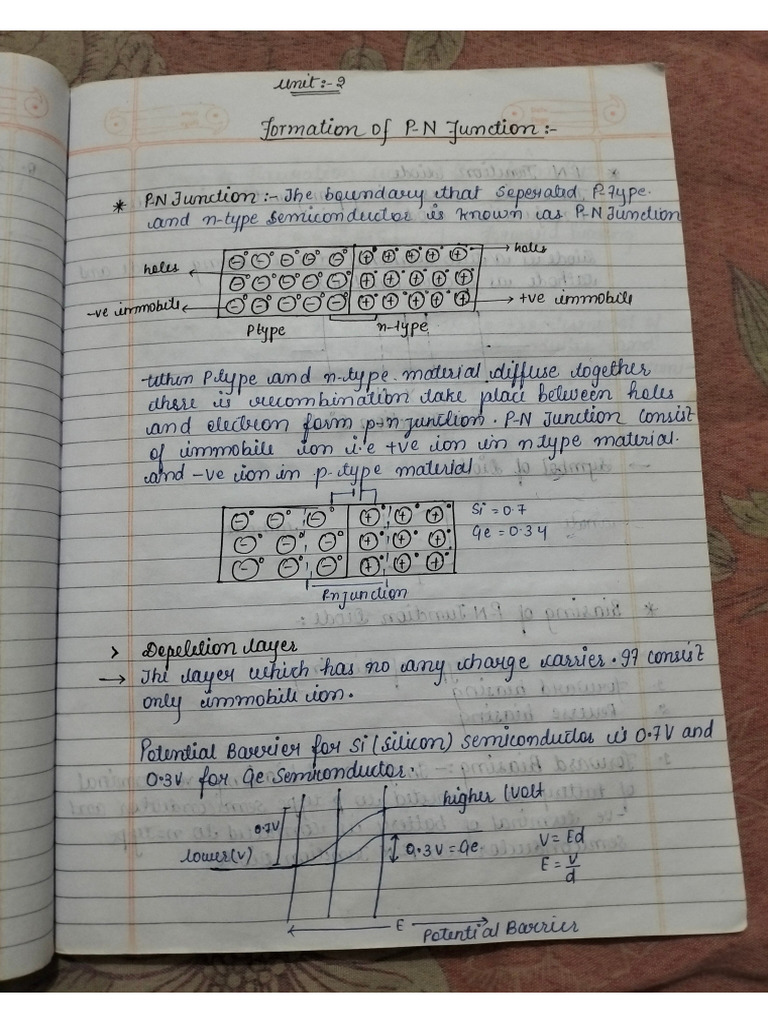 Unit:-2
Formation of P-N Junction:-
* P-N Junction:- The boundary that seperated P-Type
and n-type semiconductor is known as P-N Junction
holes
holes
-ve immobile
+ve immobile
Ptype
n-type
When Ptype and n-type material diffuse together
there is recombination take place between holes
and electron form p-n junction. P-N Junction consist
of immobile ion i.e +ve ion in n type material
and -ve ion in p-type material
Si = 0.7
Ge = 0.34
Pn junction
> Depeletion layer
→ The layer which has no any charge carrier. It consist
only immobile ion.
Potential Barrier for Si (Silicon) Semiconductor is 0.7V and
0.3V for Ge Semiconductor.
higher (volt
0.7V
lower(v)
0.3V = Ge
V = Ed
E = V/d
E
Potential Barrier